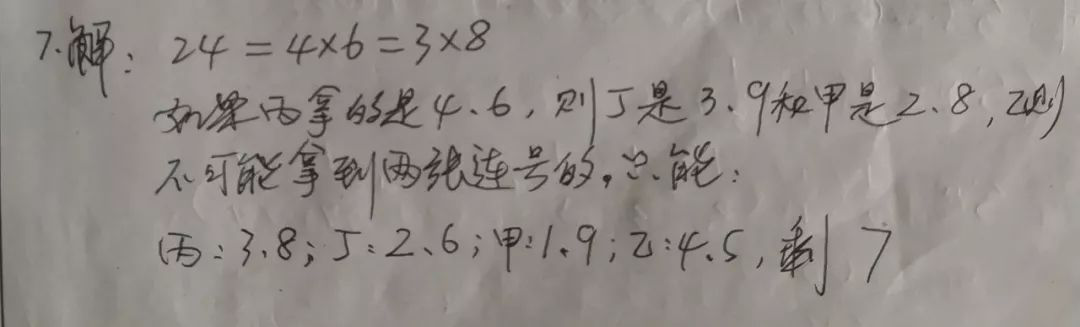 7.解: 24=4×6=3×8
如果丙拿的是4、6,则丁是3、9和甲是2、8,乙则
不可能拿到两张连号的。只能:
丙:3、8;丁:2、6;甲:1、9;乙:4、5,剩7